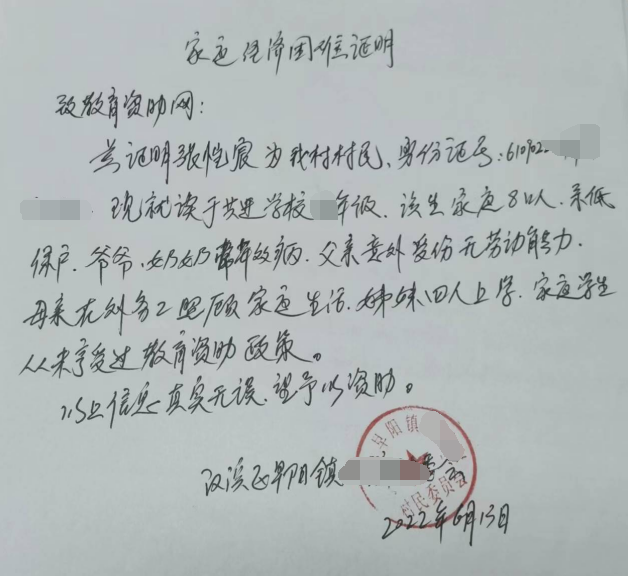 家庭经济困难证明
致教育资助网：
兹证明张恺宸为我村村民、身份证号：610902
现就读于共进学校 年级. 该生家庭8口人. 系低
保户. 爷爷、奶奶常年放病. 父亲意外受份无劳动能力.
母亲在外务工照顾家庭生活. 姊妹四人上学. 家庭学生
从未享受过教育资助政策。
以上信息真实无误. 望予以资助。
汉滨区早阳镇
早阳镇
村民委员会
2022年6月13日